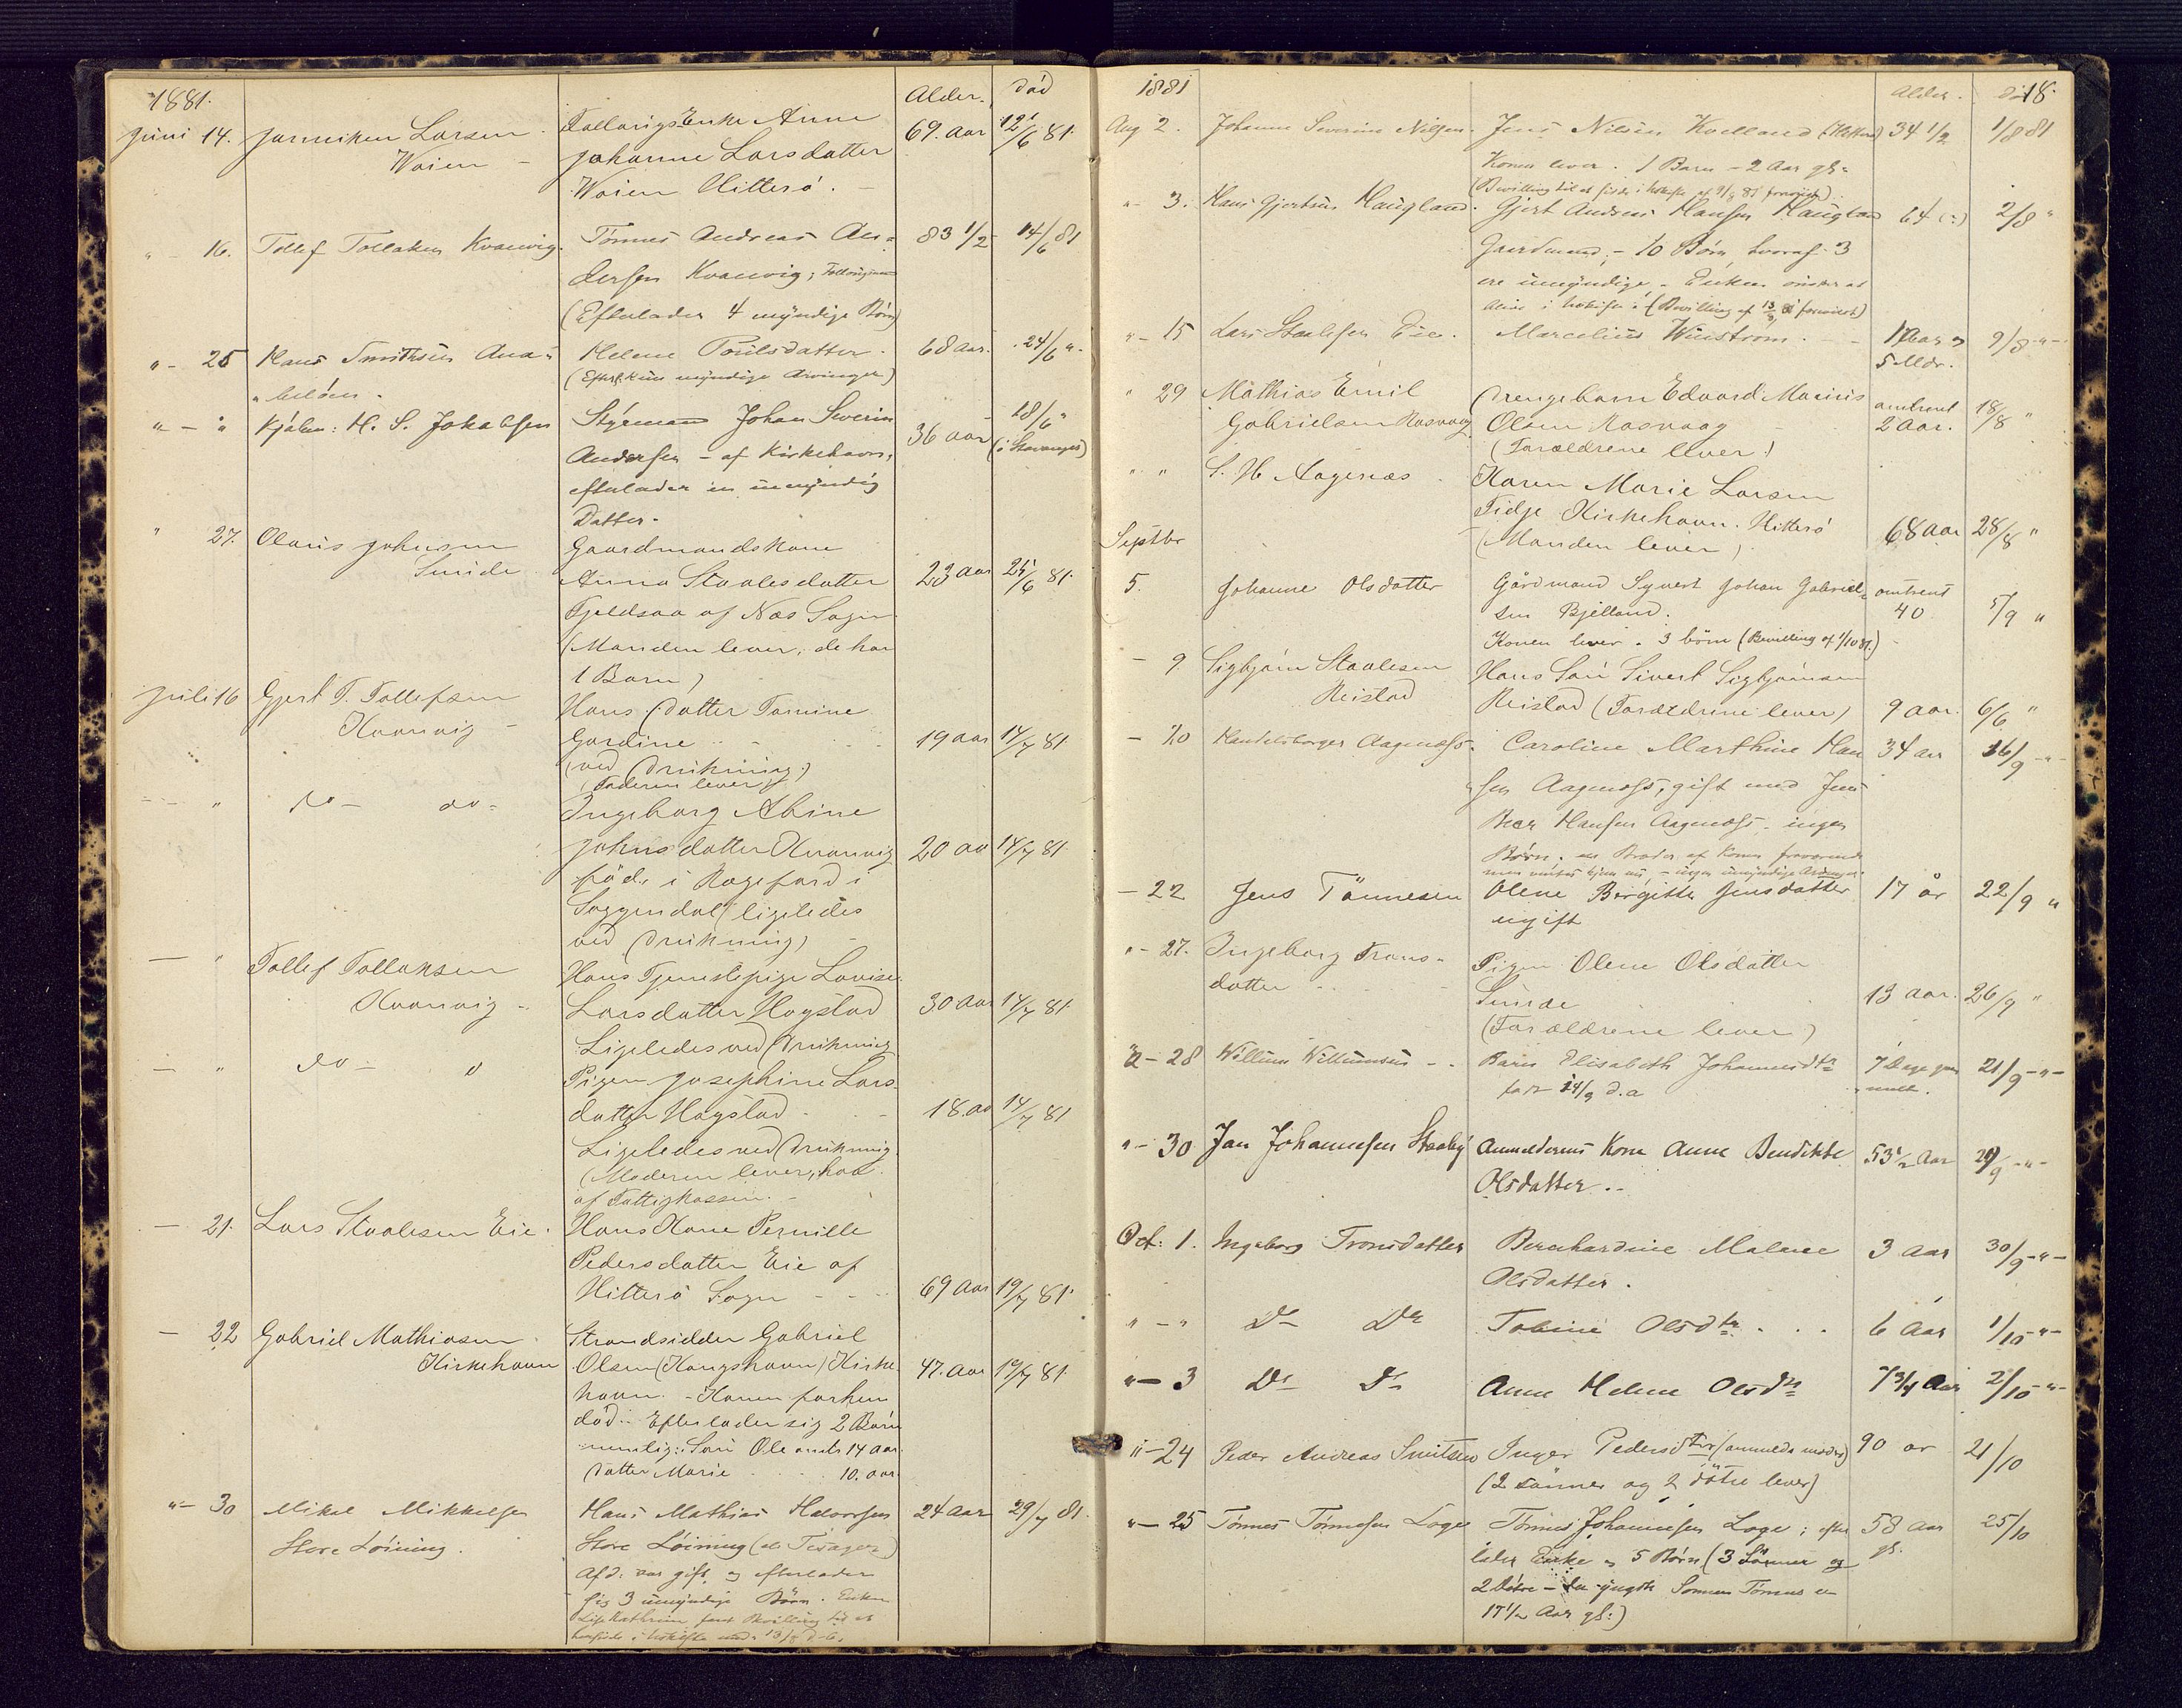 1881. Alder. död
Juni 14. Janniken Larsen Follaugs Enke Anne 69. aar 12/6 81.
Waien – Johanne Larsdatter
Waien Hitterö. –
" – 16. Tollef Tollaksen Kvanvig. Tönnes Andreas An= 83 1/2 14/6 81
dersen Kvanvig;
(Efterlader 4 myndige Börn)
" – 25 Hans Smithsen Ana= Helene Poulsdatter. 68 aar. 24/6 "
" belöen. (Efterl. kun myndige Arvinger)
" – " Kjöbm: H. S. Jakobsen Styrmand Johan Severin 36 aar 18/6 "
Andersen – af Kirkehavn, (i Stavanger)
efterlader en umyndig
Datter.
" 27. Olaus Johnsen Gaardmandskone
Sunde Anna Staalesdatter 23 aar 25/6 81.
Fjeldsaa af Næs Sogn
(Manden lever, de har
1 Barn)
Juli 16 Gjert T. Tollefsen Hans Datter Tomine
Kvanvig – Gurdine 19 aar 14/7 81.
(ved Drukning)
(Faderen lever)
– " do – do – Ingeborg Abine
Johnsdatter Kvanvig 20 aa 14/7 81.
föd i Rægefjord i
Soggendal (ligeledes
ved Drukning)
– " Tollef Tollaksen Hans Tjenestepige Lovise
Kvanvig – Larsdatter Hogstad 30 aar 14/7 81.
Ligeledes ved Drukning
– " do – " Pigen Josephine Lars-
datter Hogstad 18. aa 14/7 81
Ligeledes ved Drukning.
(Moderen lever, har
af Fattigkassen. –
– 21. Lars Staalesen Eie. Hans Kone Pernille
Pedersdatter Eie af
Hitterö Sogn 69 aar 19/7 81.
– 22 Gabriel Mathiasen Strandsidder Gabriel
Kirkehavn Olsen (Kongshavn) Kirke 47. aar 19/7 81.
havn. – Konen forhen
död. Efterlader sig 2 Börn
nemlig: Sön Ole 14 aar.
Datter Marie 10. aar.
" – 30 Mikal Mikkelsen Hans Mathias Halvorsen 24 aar 29/7 81.
Store Löining. Store Löining
Afd: var gift, og efterlader
sig 3 umyndige Börn. Enken
1881 Alder. 18.
Aug 2. Johanne Severine Nilsen. Jens Nilsen Kvelland 34 1/2 1/8 81
Konen lever. 1 Barn – 2 Aar gl.
" 3. Hans Gjertsen Haugland. Gjert Andreas Hansen Haugland 64 2/8 "
Gaardmand; – 10 Börn, hvoraf 3
ere umyndige, – Enken önsker at
" – 15 Lars Staalesen Eie. Marcelius Winstrom. 1 Aar og 9/8 "
5 Mdr.
" 29 Mathias Emil Drengebarn Edvard Marius omtrent 18/8 "
Gabrielsen Rasvaag Olsen Rasvaag 2 aar.
(Foræeldrene lever)
" " S. H. Aagenæs Karen Marie Larsen
Tidje Kirkehavn. Hitterö 68 aar 28/8 "
Septbr (Manden lever)
5. Johanne Olsdatter Gårdmand Syvert Johan Gabriel= omtrent 5/9 "
sen Bjelland. 40
Konen lever. 3 börn (Bevilling af 1/10 81.)
– 9. Sigbjörn Staalesen Hans Sön Sivert Sigbjörnsen
Reistad Reistad (Forældrene lever) 9 aar. 6/6 "
– 20 Handelsborger Aagenæss. Caroline Marthine Han 34 aar 16/9 "
sen Aagenæss, gift med Jens
Hansen Aagenæss. ingen
Börn.
– 22 Jens Tönnesen Olene Birgitte Jensdatter 17 år 22/9 "
ugift
" – 27. Ingeborg Trons- Pigen Olene Olsdatter
datter Sunde 13 aar. 26/9 "
(Forældrene lever)
" – 28 Willum Willumsen Barn Elisabeth Johannesdtr 7 Dage 21/9 "
födt 14/9 d.a
" – 30 Jan Johannesen Staaby Anmelderens Kone Anne Bendikte 53 1/2 Aar 29/9 "
Olsdatter.
Oct: 1. Ingeborg Tronsdatter Bernhardine Malene 3 Aar 30/9 "
Olsdatter.
" – " Do Do Tobine Olsdtr. 6 Aar 1/10 "
" – 3 Do Do Anne Helene Olsdtr 7 3/4 Aar 2/10 "
" – 24 Peder Andreas Smitsen Inger Pedersdtr (anmelders moder) 90 år 21/10
(2 sönner og 2 dötre lever)
" – 25 Tönnes Tönnesen Loge Tönnes Johannesen Loge; efter 58 Aar 25/10
lader Enke og 5 Börn (3 Sönner og gl.
2 Dötre – den yngste Sonnen Tönnes er
17 1/2 Aar gl:)